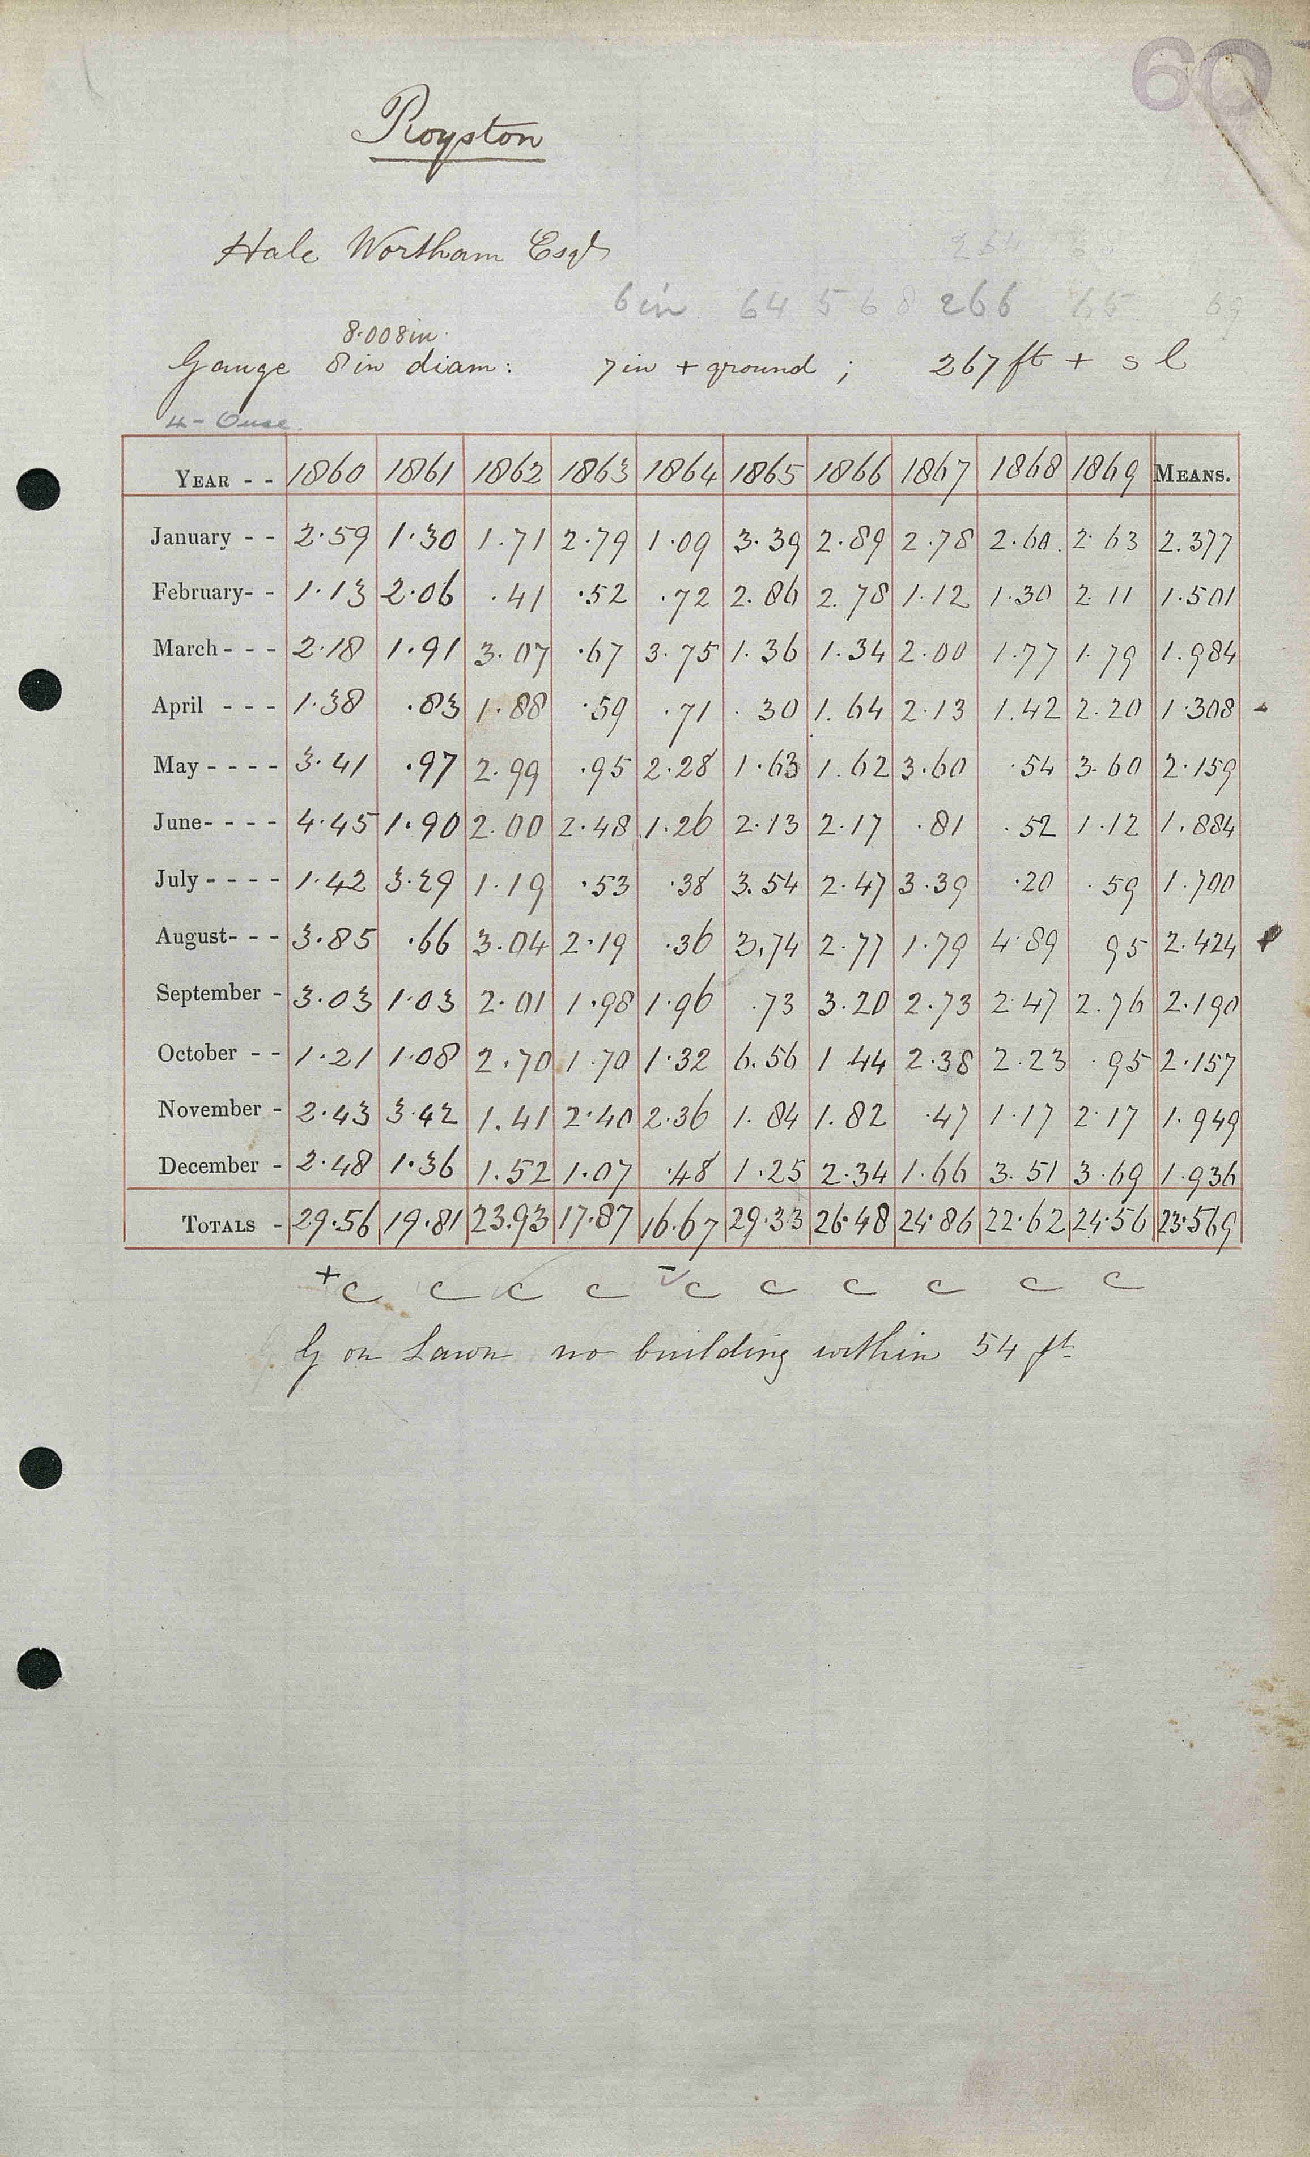 60
Royston
Hale Wortham Esqr
6in 64 5 6 8 266 65 69
8.008in
Gauge 8 in diam: 7 in + ground ; 267 ft + s l
4 - Ouse
YEAR - - 1860 1861 1862 1863 1864 1865 1866 1867 1868 1869 MEANS.
January - - 2.59 1.30 1.71 2.79 1.09 3.39 2.89 2.78 2.60 2.63 2.377
February- - 1.13 2.06 .41 .52 .72 2.86 2.78 1.12 1.30 2.11 1.501
March - - - 2.18 1.91 3.07 .67 3.75 1.36 1.34 2.00 1.77 1.79 1.984
April - - - 1.38 .83 1.88 .59 .71 .30 1.64 2.13 1.42 2.20 1.308
May - - - - 3.41 .97 2.99 .95 2.28 1.63 1.62 3.60 .54 3.60 2.159
June- - - - 4.45 1.90 2.00 2.48 1.26 2.13 2.17 .81 .52 1.12 1.884
July - - - - 1.42 3.29 1.19 .53 .38 3.54 2.47 3.39 .20 .59 1.700
August- - - 3.85 .66 3.04 2.19 .36 3.74 2.77 1.79 4.89 95 2.424
September - 3.03 1.03 2.01 1.98 1.96 .73 3.20 2.73 2.47 2.76 2.190
October - - 1.21 1.08 2.70 1.70 1.32 6.56 1.44 2.38 2.23 .95 2.157
November - 2.43 3.42 1.41 2.40 2.36 1.84 1.82 .47 1.17 2.17 1.949
December - 2.48 1.36 1.52 1.07 .48 1.25 2.34 1.66 3.51 3.69 1.936
TOTALS - 29.56 19.81 23.93 17.87 16.67 29.33 26.48 24.86 22.62 24.56 23.569
+c c c c -c c c c c c
G on Lawn no building within 54 ft